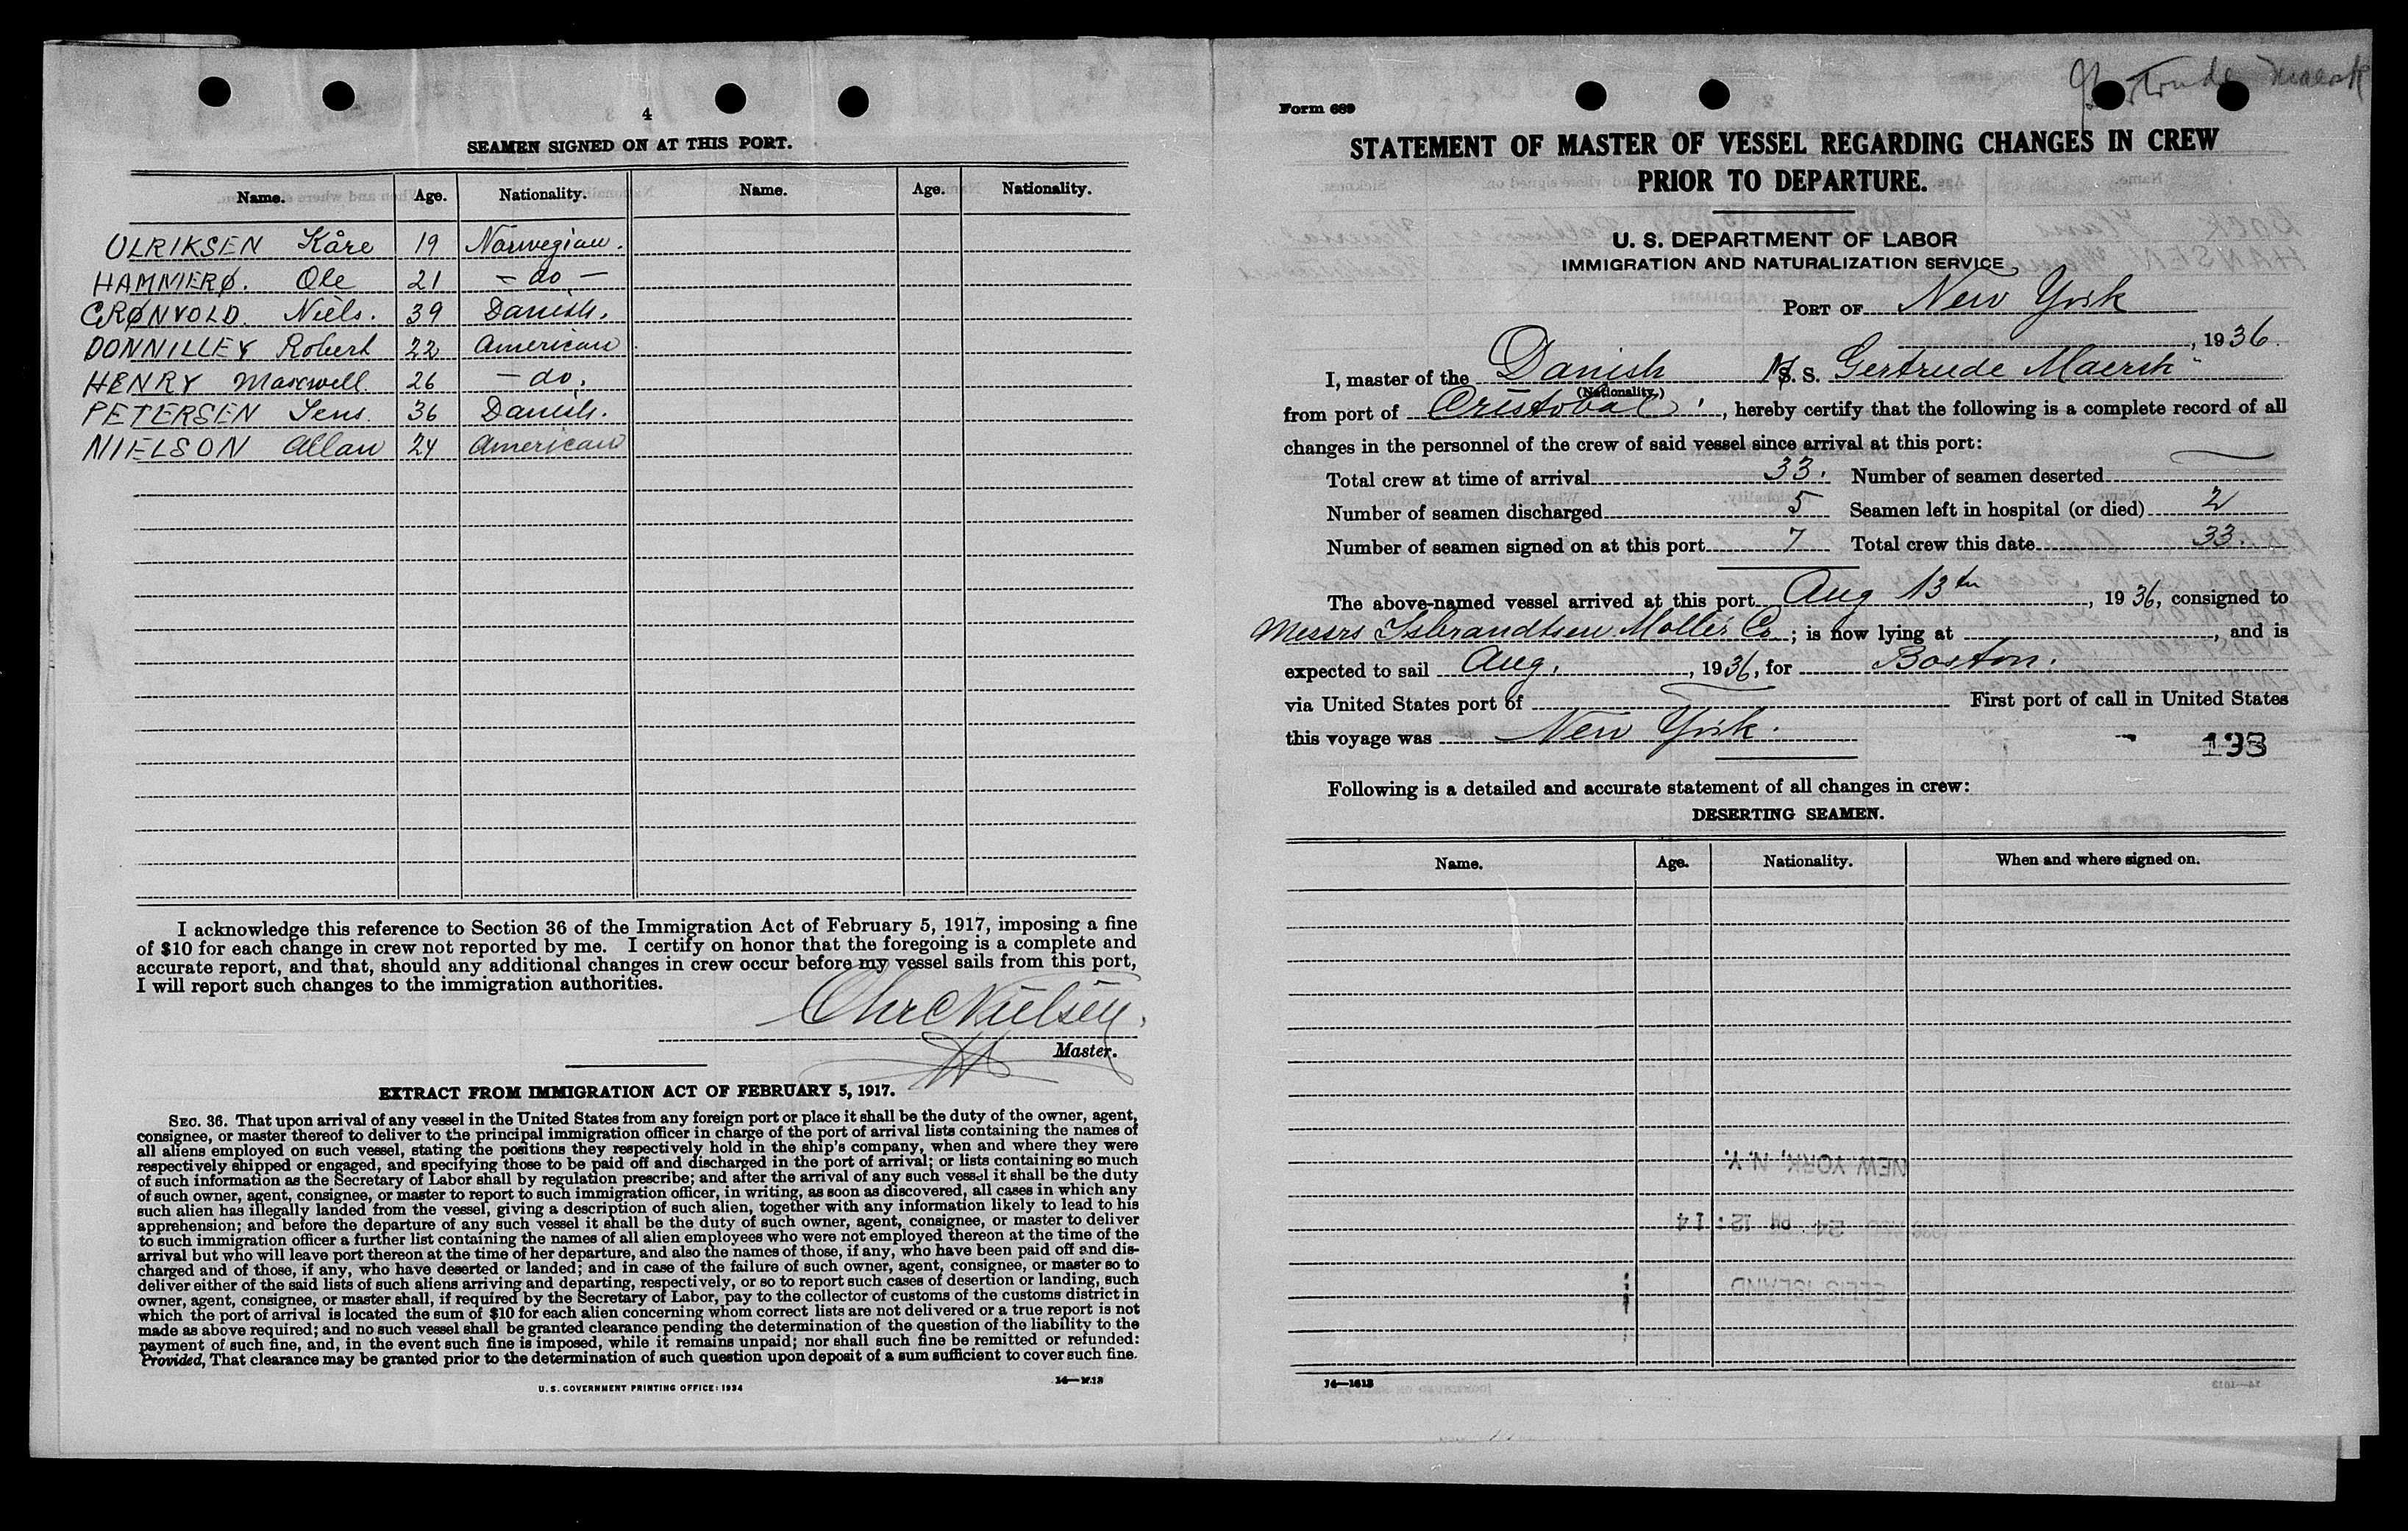 4
SEAMEN SIGNED ON AT THIS PORT.
Name. Age. Nationality. Name. Age. Nationality.
ULRIKSEN Kåre 19 Norwegian.
HAMMERØ. Ole 21 - do -
GRØNVOLD. Niels. 39 Danish.
DONNILLEY Robert 22 American
HENRY Maxwell. 26 - do.
PETERSEN Jens. 36 Danish.
NIELSON Allan 24 American
I acknowledge this reference to Section 36 of the Immigration Act of February 5, 1917, imposing a fine
of $10 for each change in crew not reported by me. I certify on honor that the foregoing is a complete and
accurate report, and that, should any additional changes in crew occur before my vessel sails from this port,
I will report such changes to the immigration authorities.
Chr C Nielsen.
Master.
EXTRACT FROM IMMIGRATION ACT OF FEBRUARY 5, 1917.
SEC. 36. That upon arrival of any vessel in the United States from any foreign port or place it shall be the duty of the owner, agent,
consignee, or master thereof to deliver to the principal immigration officer in charge of the port of arrival lists containing the names of
all aliens employed on such vessel, stating the positions they respectively hold in the ship's company, when and where they were
respectively shipped or engaged, and specifying those to be paid off and discharged in the port of arrival; or lists containing so much
of such information as the Secretary of Labor shall by regulation prescribe; and after the arrival of any such vessel it shall be the duty
of such owner, agent, consignee, or master to report to such immigration officer, in writing, as soon as discovered, all cases in which any
such alien has illegally landed from the vessel, giving a description of such alien, together with any information likely to lead to his
apprehension; and before the departure of any such vessel it shall be the duty of such owner, agent, consignee, or master to deliver
to such immigration officer a further list containing the names of all alien employees who were not employed thereon at the time of the
arrival but who will leave port thereon at the time of her departure, and also the names of those, if any, who have been paid off and dis-
charged and of those, if any, who have deserted or landed; and in case of the failure of such owner, agent, consignee, or master so to
deliver either of the said lists of such aliens arriving and departing, respectively, or so to report such cases of desertion or landing, such
owner, agent, consignee, or master shall, if required by the Secretary of Labor, pay to the collector of customs of the customs district in
which the port of arrival is located the sum of $10 for each alien concerning whom correct lists are not delivered or a true report is not
made as above required; and no such vessel shall be granted clearance pending the determination of the question of the liability to the
payment of such fine, and, in the event such fine is imposed, while it remains unpaid; nor shall such fine be remitted or refunded:
Provided, That clearance may be granted prior to the determination of such question upon deposit of a sum sufficient to cover such fine.
U. S. GOVERNMENT PRINTING OFFICE: 1934
Gertrude Maersk
Form 689
STATEMENT OF MASTER OF VESSEL REGARDING CHANGES IN CREW
PRIOR TO DEPARTURE.
U. S. DEPARTMENT OF LABOR
IMMIGRATION AND NATURALIZATION SERVICE
PORT OF New York
, 1936.
I, master of the Danish M. S. Gertrude Maersk
(Nationality.)
from port of Cristobal, hereby certify that the following is a complete record of all
changes in the personnel of the crew of said vessel since arrival at this port:
Total crew at time of arrival 33. Number of seamen deserted —
Number of seamen discharged 5 Seamen left in hospital (or died) 2
Number of seamen signed on at this port 7 Total crew this date 33.
The above-named vessel arrived at this port Aug 13th, 1936, consigned to
Messrs Isbrandtsen Moller Co; is now lying at , and is
expected to sail Aug., 1936, for Boston.
via United States port of — First port of call in United States
this voyage was New York.
133
Following is a detailed and accurate statement of all changes in crew:
DESERTING SEAMEN.
Name. Age. Nationality. When and where signed on.
14—1613